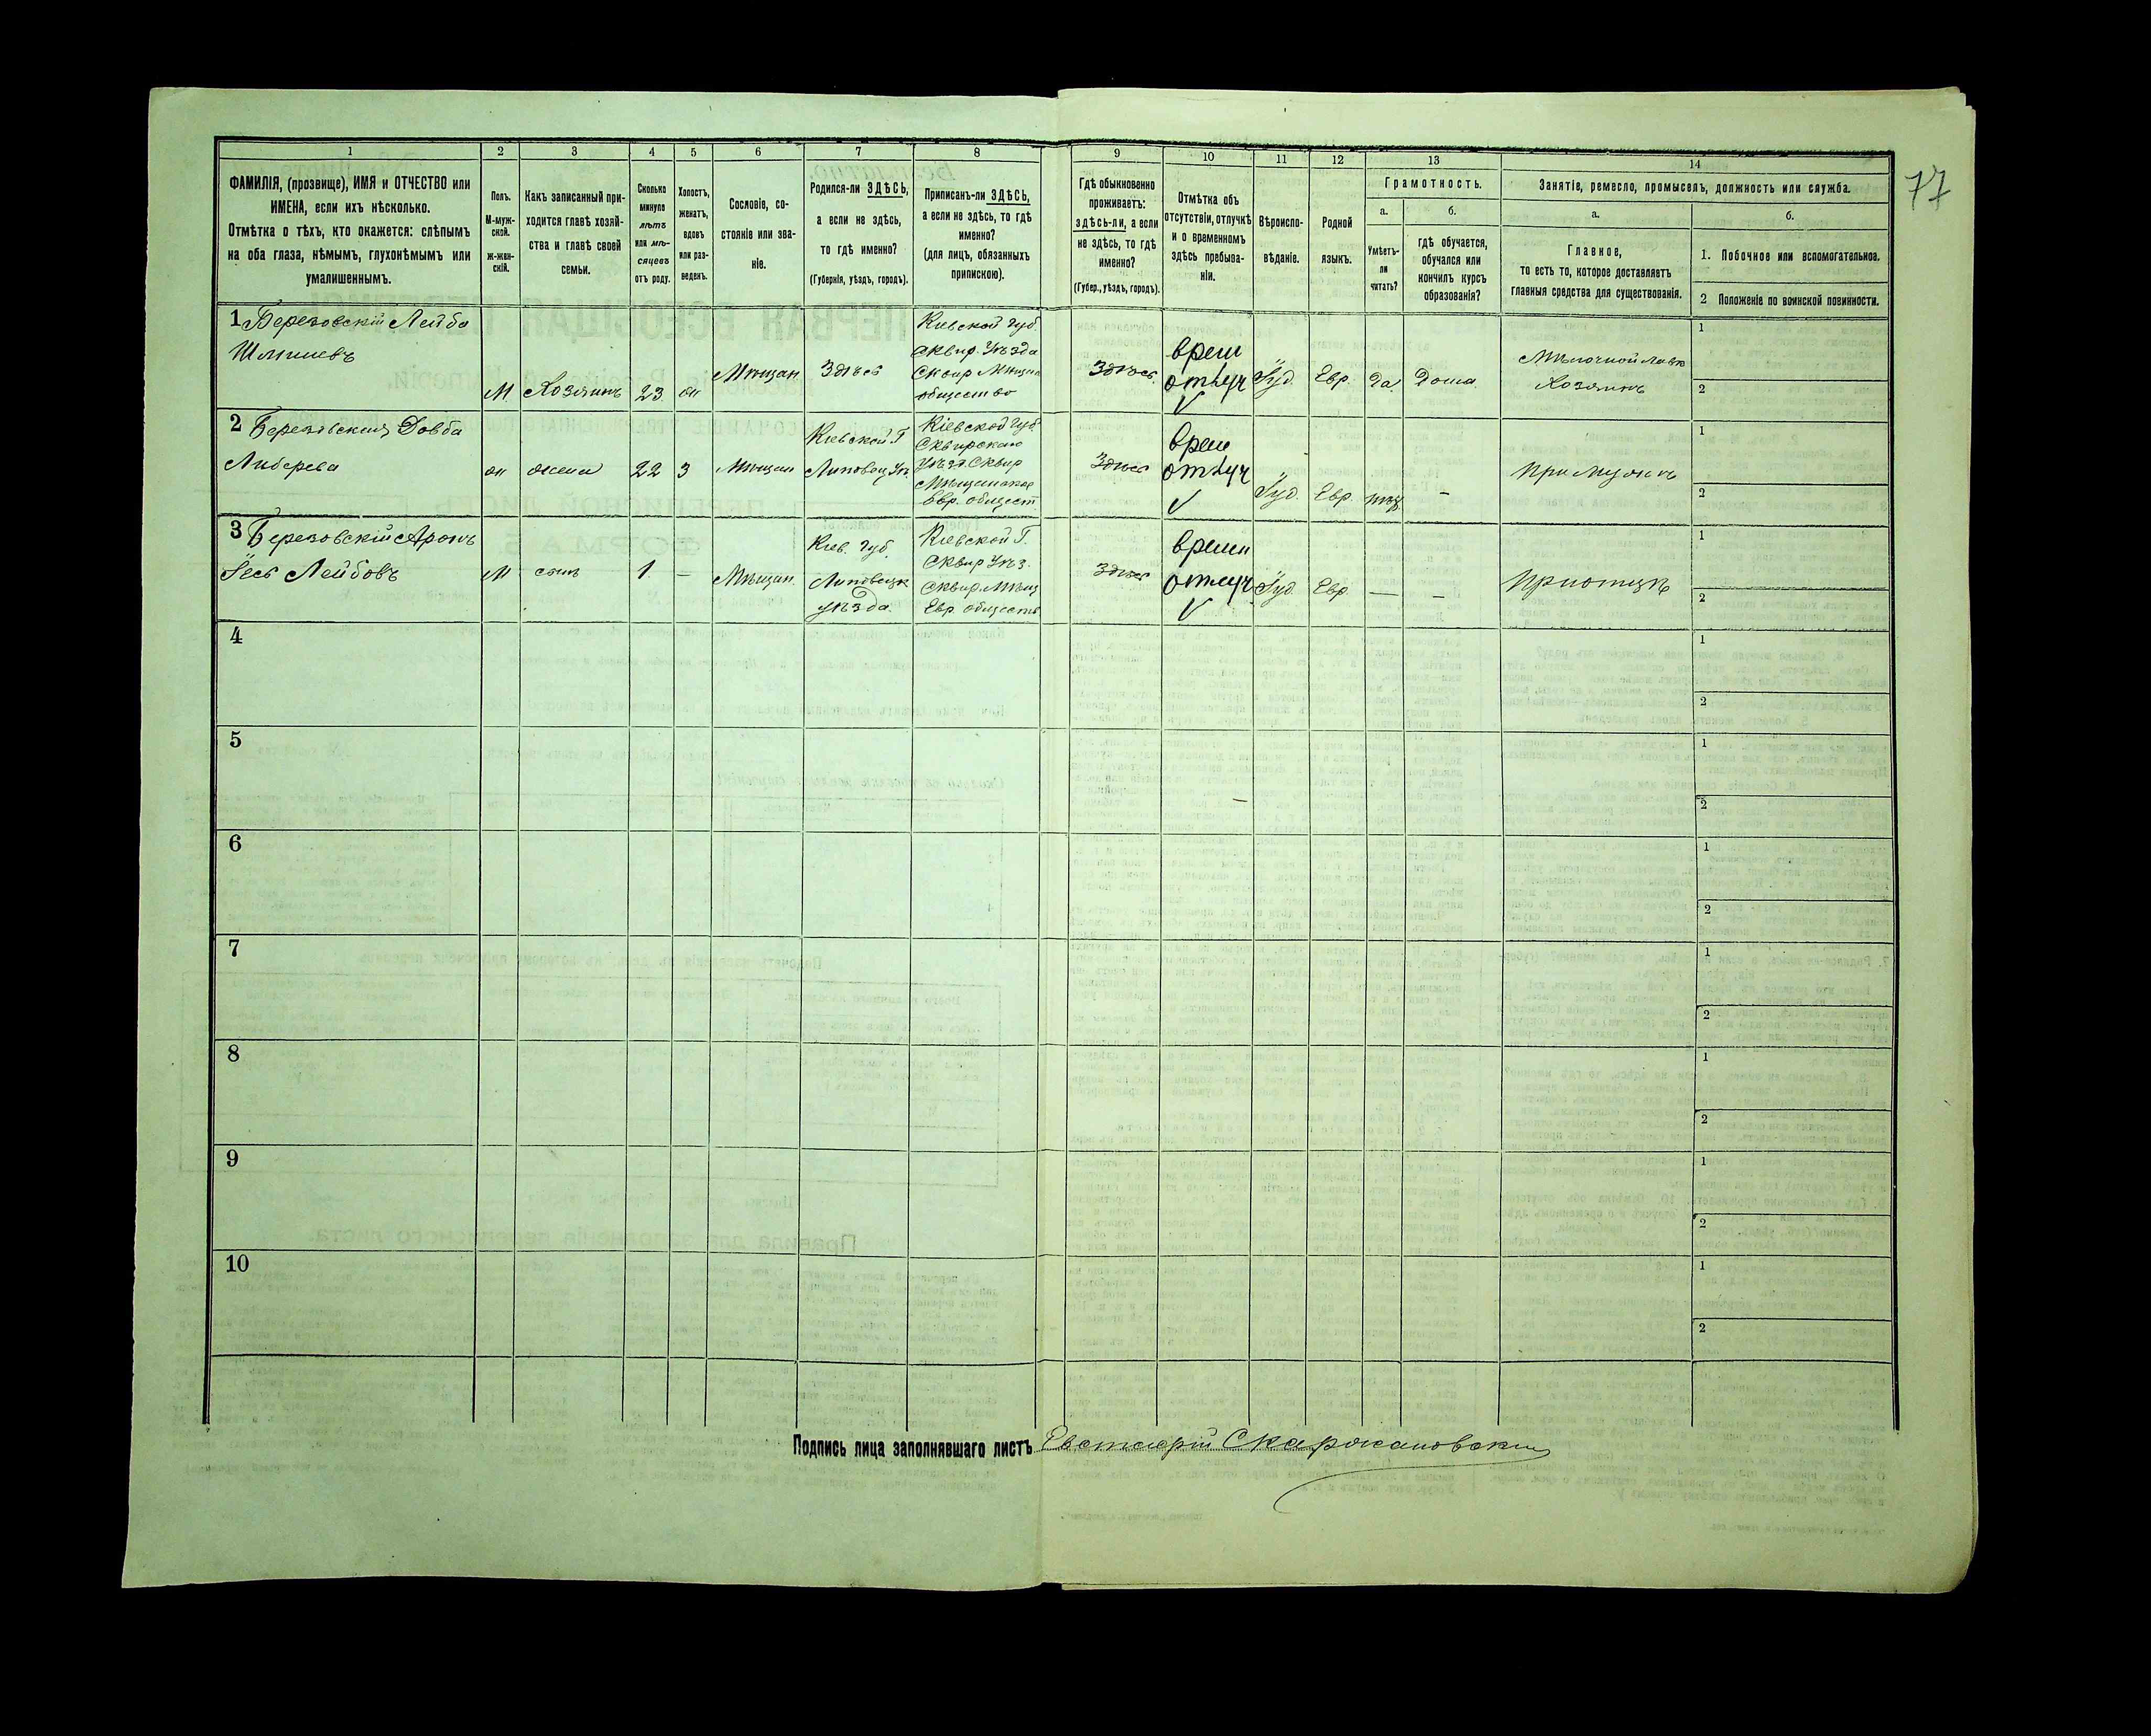 77
1 2 3 4 5 6 7 8 9 10 11 12 13 14
ФАМИЛІЯ, (прозвище), ИМЯ и ОТЧЕСТВО или
ИМЕНА, если ихъ нѣсколько.
Отмѣтка о тѣхъ, кто окажется: слѣпымъ
на оба глаза, нѣмымъ, глухонѣмымъ или
умалишеннымъ.
Полъ.
М-муж-
ской.
ж-жен-
скій.
Какъ записанный при-
ходится главѣ хозяй-
ства и главѣ своей
семьи.
Сколько
минуло
лѣтъ
или мѣ-
сяцевъ
отъ роду.
Холостъ,
женатъ,
вдовъ
или раз-
веденъ.
Сословіе, со-
стояніе или зва-
ніе.
Родился-ли ЗДѢСЬ,
а если не здѣсь,
то гдѣ именно?
(Губернія, уѣздъ, городъ).
Приписанъ-ли ЗДѢСЬ,
а если не здѣсь, то гдѣ
именно?
(для лицъ, обязанныхъ
припискою).
Гдѣ обыкновенно
проживаетъ:
здѣсь-ли, а если
не здѣсь, то гдѣ
именно?
(Губер., уѣздъ, городъ).
Отмѣтка объ
отсутствіи, отлучкѣ
и о временномъ
здѣсь пребыва-
ніи.
Вѣроиспо-
вѣданіе.
Родной
языкъ.
Грамотность.
а.
Умѣетъ-
ли
читать?
б.
гдѣ обучается,
обучался или
кончилъ курсъ
образованія?
Занятіе, ремесло, промыселъ, должность или служба.
а.
Главное,
то есть то, которое доставляетъ
главныя средства для существованія.
б.
1. Побочное или вспомогательное.
2 Положеніе по воинской повинности.
1 Березовскій Лейба
Шмилевъ
М
Хозяинъ
23
Мѣщан
Здѣсь
Кіевской губ.
Сквир. Уѣзда
Сквир Мѣщан
общество
Здѣсь
врем
отлуч
Іуд.
Евр.
да
Дома
Мѣлочной лавк
Хозяинъ
1
2
2 Березовская Довба
жена
22
З
Мѣщан
Кіевской Г
Липовец. Уѣ.
Кіевской Губ.
Сквирскаго
Уѣзд. Сквир
Мѣщанское
Евр. общест
Здѣсь
врем
отлуч
Іуд.
Евр.
нѣт
—
При мужѣ
1
2
3 Березовскій Аронъ
Лейбовъ
М
сынъ
1
—
Мѣщан.
Кіев. Губ.
Липовецк
уѣзда
Кіевской Г.
Сквир Уѣз.
Сквир. Мѣщ
Евр. обществ
Здѣсь
времен
отлуч
Іуд.
Евр.
—
—
При отцѣ
1
2
4
1
2
5
1
2
6
1
2
7
1
2
8
1
2
9
1
2
10
1
2
Подпись лица заполнявшаго листъ